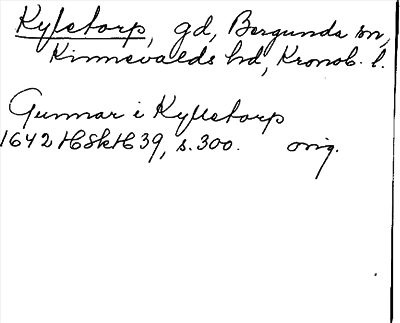 Kylstorp, gd, Bergunda sn,
Kinnevalds hd, Kronob. l.
Gunnar i Kyllstorp
1642 HSkH 39, s. 300. orig.